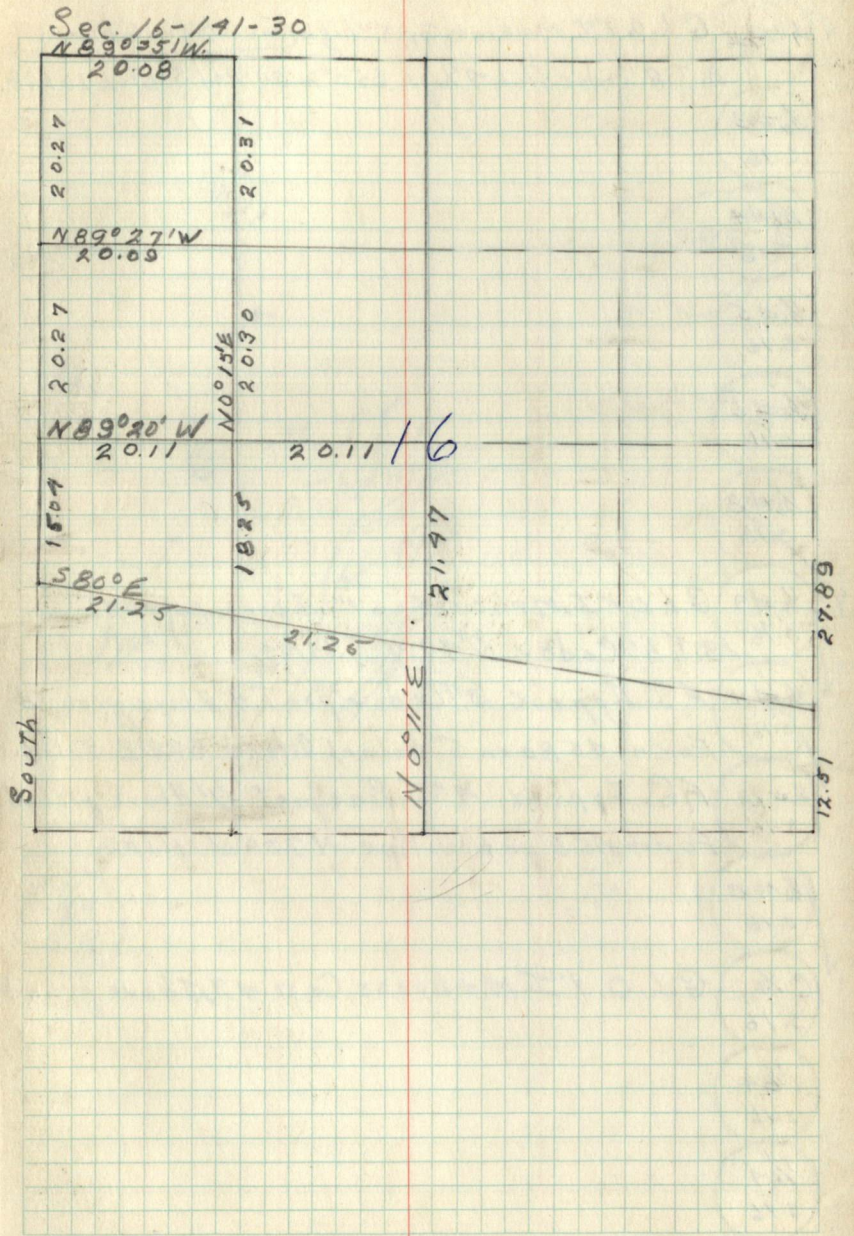 Sec. 16-141-30
N89°35'W.
20.08
20.27
20.31
N89°27'W
20.09
20.27
N0°15'E
20.30
N89°20'W
20.11
20.11
16
15.04
18.25
21.47
S80°E
21.25
21.25
27.89
South
N0°11'E
12.51